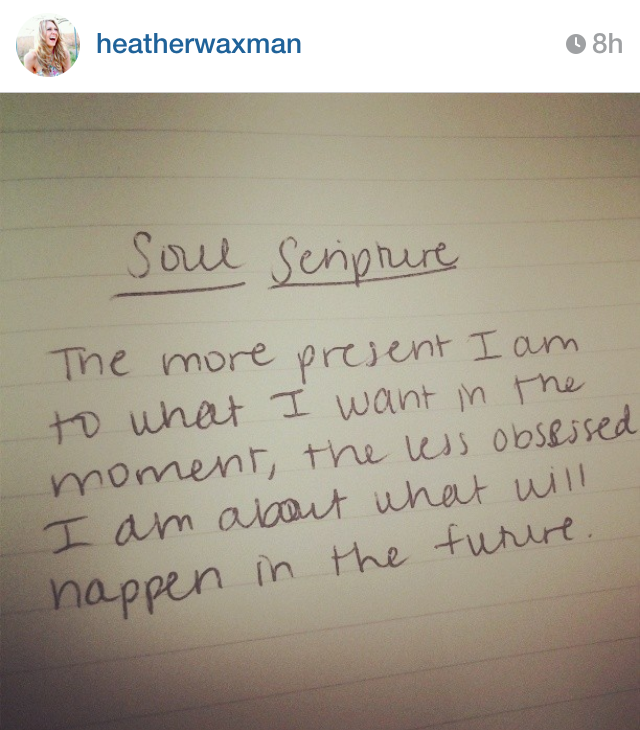 heatherwaxman
8h
Soul Scripture
The more present I am
to what I want in the
moment, the less obsessed
I am about what will
happen in the future.